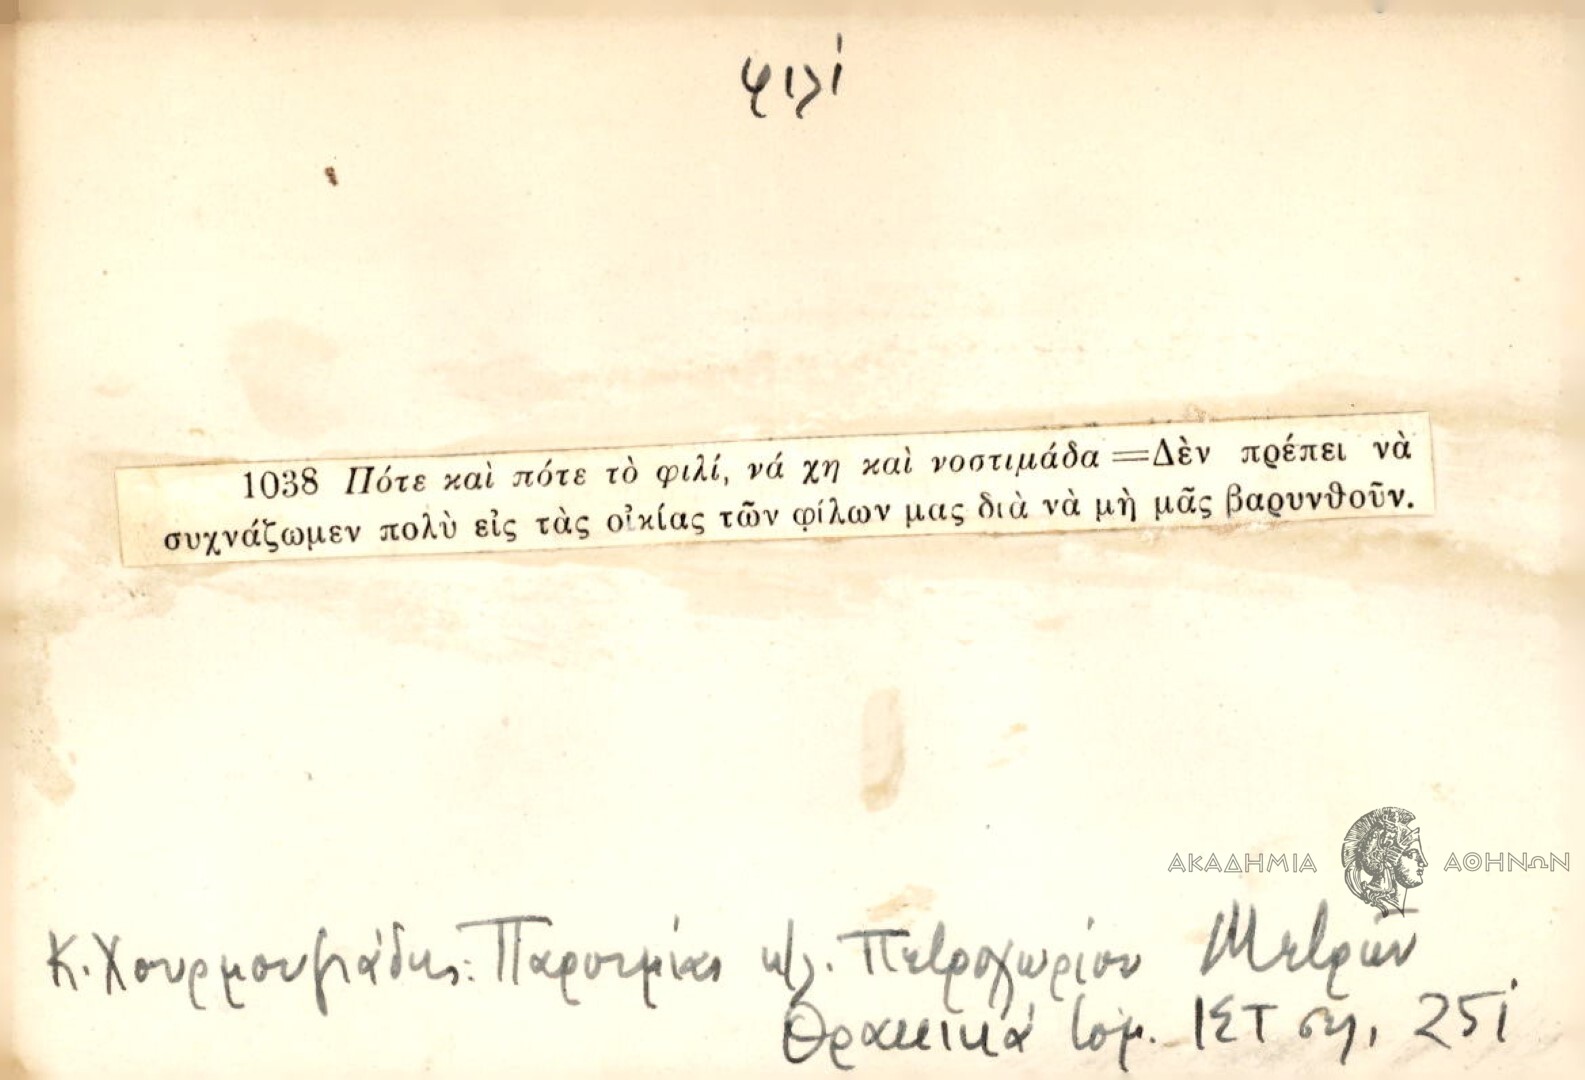 φιλί
1038 Πότε καὶ πότε τὸ φιλί, νά χη καὶ νοστιμάδα = Δὲν πρέπει νὰ
συχνάζωμεν πολὺ εἰς τὰς οἰκίας τῶν φίλων μας διὰ νὰ μὴ μᾶς βαρυνθοῦν.
ΑΚΑΔΗΜΙΑ ΑΘΗΝΩΝ
Κ. Χουρμουζιάδης: Παροιμίαι κλ. Πετροχωρίου Μετρῶν
Θρακικά τόμ. ΙΣΤ σελ. 251